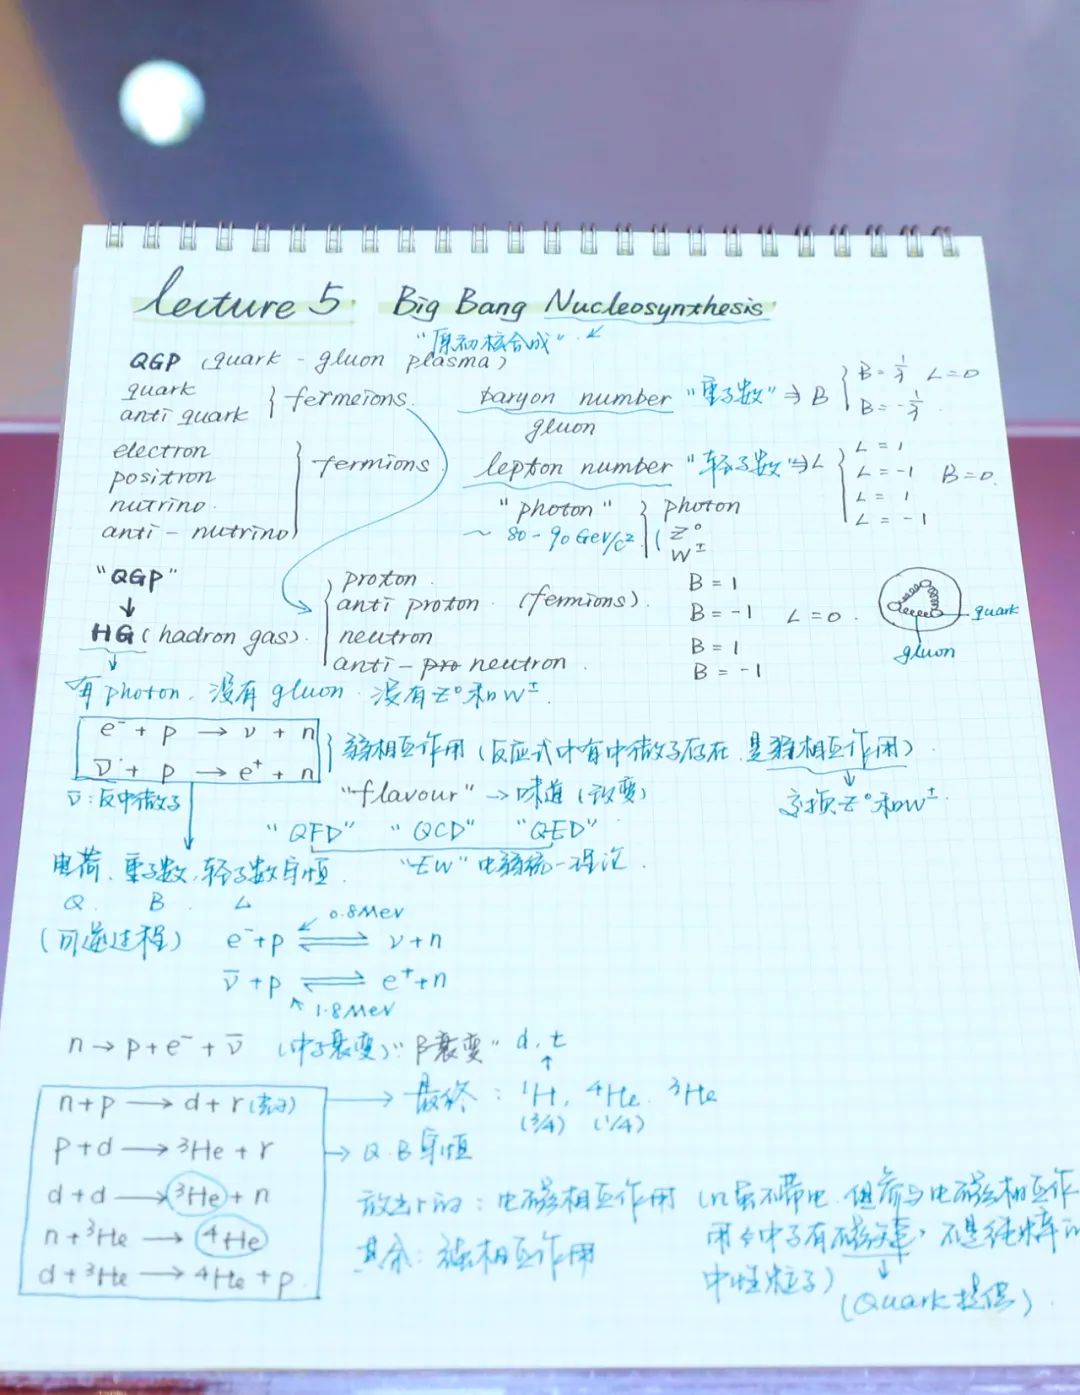 lecture 5 Big Bang Nucleosynthesis
"原初核合成"
QGP (quark - gluon plasma)
quark
anti quark
fermeions.
baryon number "重子数" ⇒ B
B = 1/3 L=0
B = -1/3
gluon
electron
positron
nutrino.
anti - nutrino
fermions
lepton number "轻子数" ⇒ L
L = 1
L = -1
L = 1
L = -1
B=0.
"photon"
~ 80-90 GeV/c²
photon
Z⁰
W±
"QGP"
↓
HG (hadron gas).
proton.
anti proton. (fermions).
neutron
anti-pro neutron.
B = 1
B = -1 L=0.
B = 1
B = -1
quark
gluon
有 photon, 没有 gluon. 没有 Z⁰ 和 W±.
e⁻ + p → ν + n
ν̄ + p → e⁺ + n
弱相互作用 (反应式中有中微子存在, 是弱相互作用).
交换 Z⁰ 和 W±.
ν̄: 反中微子
"flavour" → 味道 (改变)
"QFD" "QCD" "QED"
"EW" 电弱统一理论.
电荷、重子数,轻子数守恒.
Q. B. L
(可逆过程)
0.8MeV
e⁻+p ⇌ ν+n
ν̄+p ⇌ e⁺+n
1.8MeV
n→p+e⁻+ν̄ (中子衰变) "β衰变" d, t
n+p → d+r (光子)
p+d → ³He + r
d+d → ³He + n
n+³He → ⁴He
d+³He → 4He + p
→ 最终: ¹H, ⁴He. ³He
(3/4) (1/4)
→ Q.B守恒
放出r的: 电磁相互作用 (n虽不带电, 但参与电磁相互作
用 中子有磁矩, 不是纯粹的
中性粒子)
(Quark提供).
其余: 强相互作用